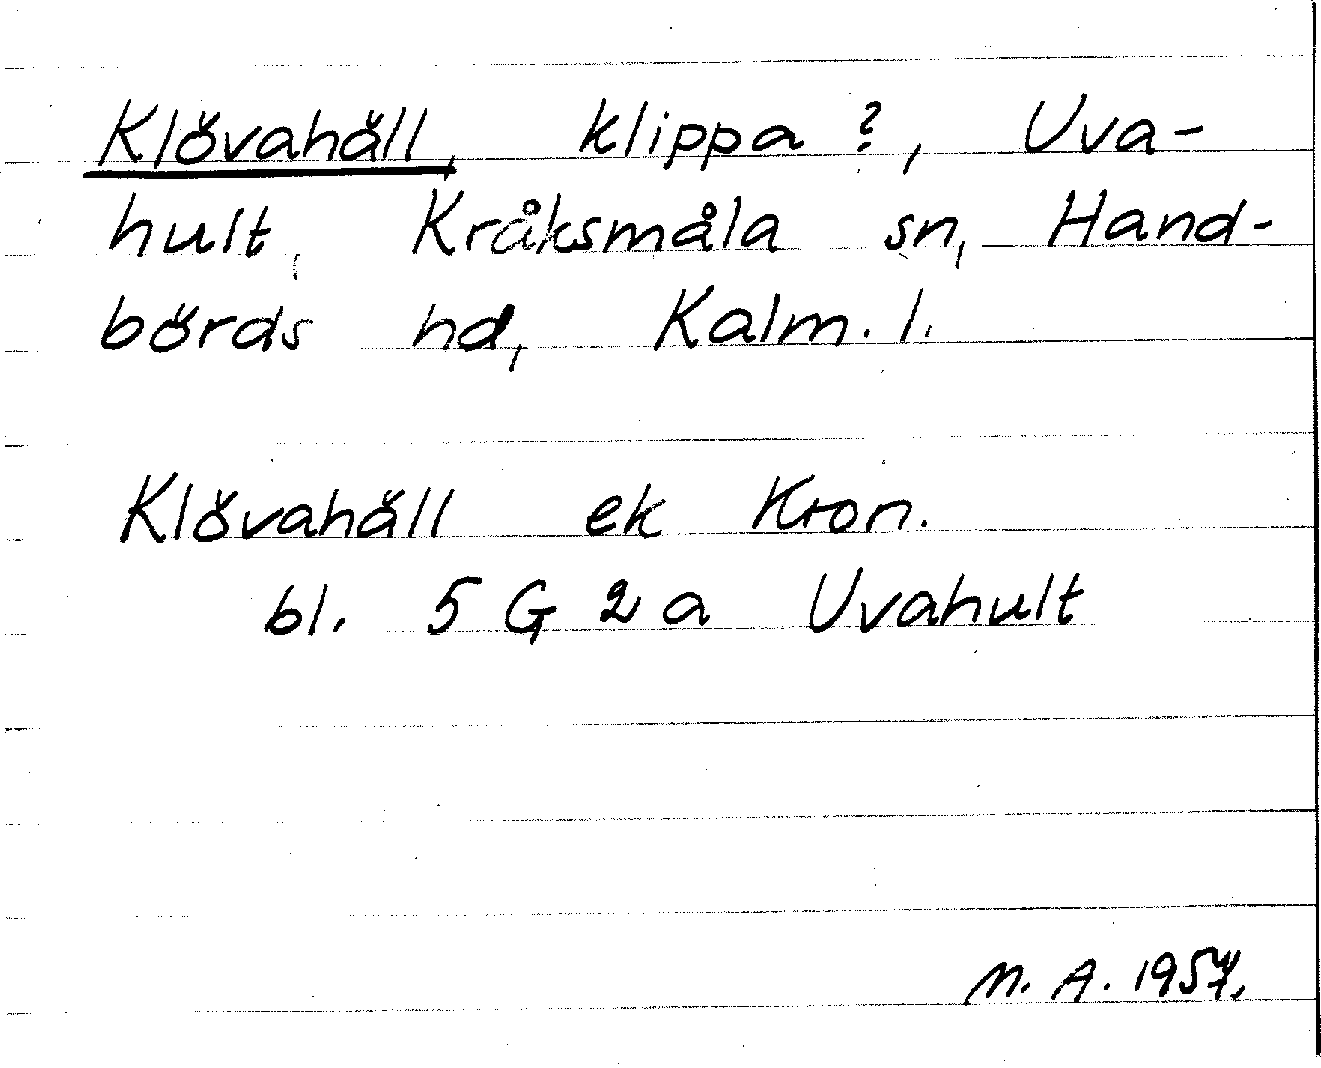 Klövahäll, klippa?, Uva-
hult, Kråksmåla sn, Hand-
börds hd, Kalm. l.
Klövahäll ek Kron.
bl. 5 G 2 a Uvahult
M. A. 1957.